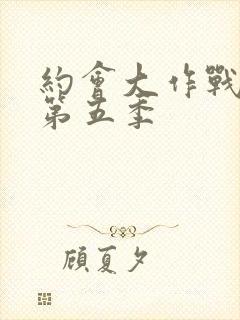 約會大作戰
第五季
顧夏夕